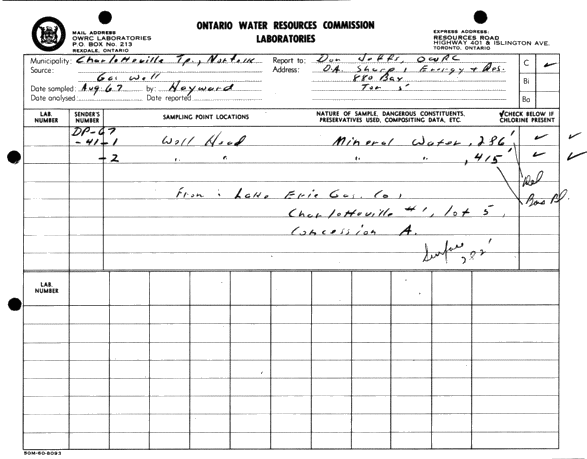 ONTARIO WATER RESOURCES COMMISSION
LABORATORIES
MAIL ADDRESS
OWRC LABORATORIES
P.O. BOX No. 213
REXDALE, ONTARIO
EXPRESS ADDRESS:
RESOURCES ROAD
HIGHWAY 401 & ISLINGTON AVE.
TORONTO, ONTARIO
Municipality: Charlotteville Tp., Norfolk
Report to: Don Jeffs, OWRC
C ✓
Source: Gas Well
Address: D.A. Sharp, Energy + Res.
880 Bay
Tor 5
Bi
Date sampled: Aug 67 by: Hayward
Date analysed: Date reported
Ba
LAB. NUMBER
SENDER'S NUMBER
SAMPLING POINT LOCATIONS
NATURE OF SAMPLE, DANGEROUS CONSTITUENTS, PRESERVATIVES USED, COMPOSITING DATA, ETC.
✓CHECK BELOW IF CHLORINE PRESENT
DP-67
-41-1 Well Head Mineral Water, 286' ✓ ✓
-2 " " " " , 415' ✓ ✓
From: Lake Erie Gas. Co,
Charlotteville #1, lot 5,
Concession A.
Surface
LAB. NUMBER
50M-60-8093